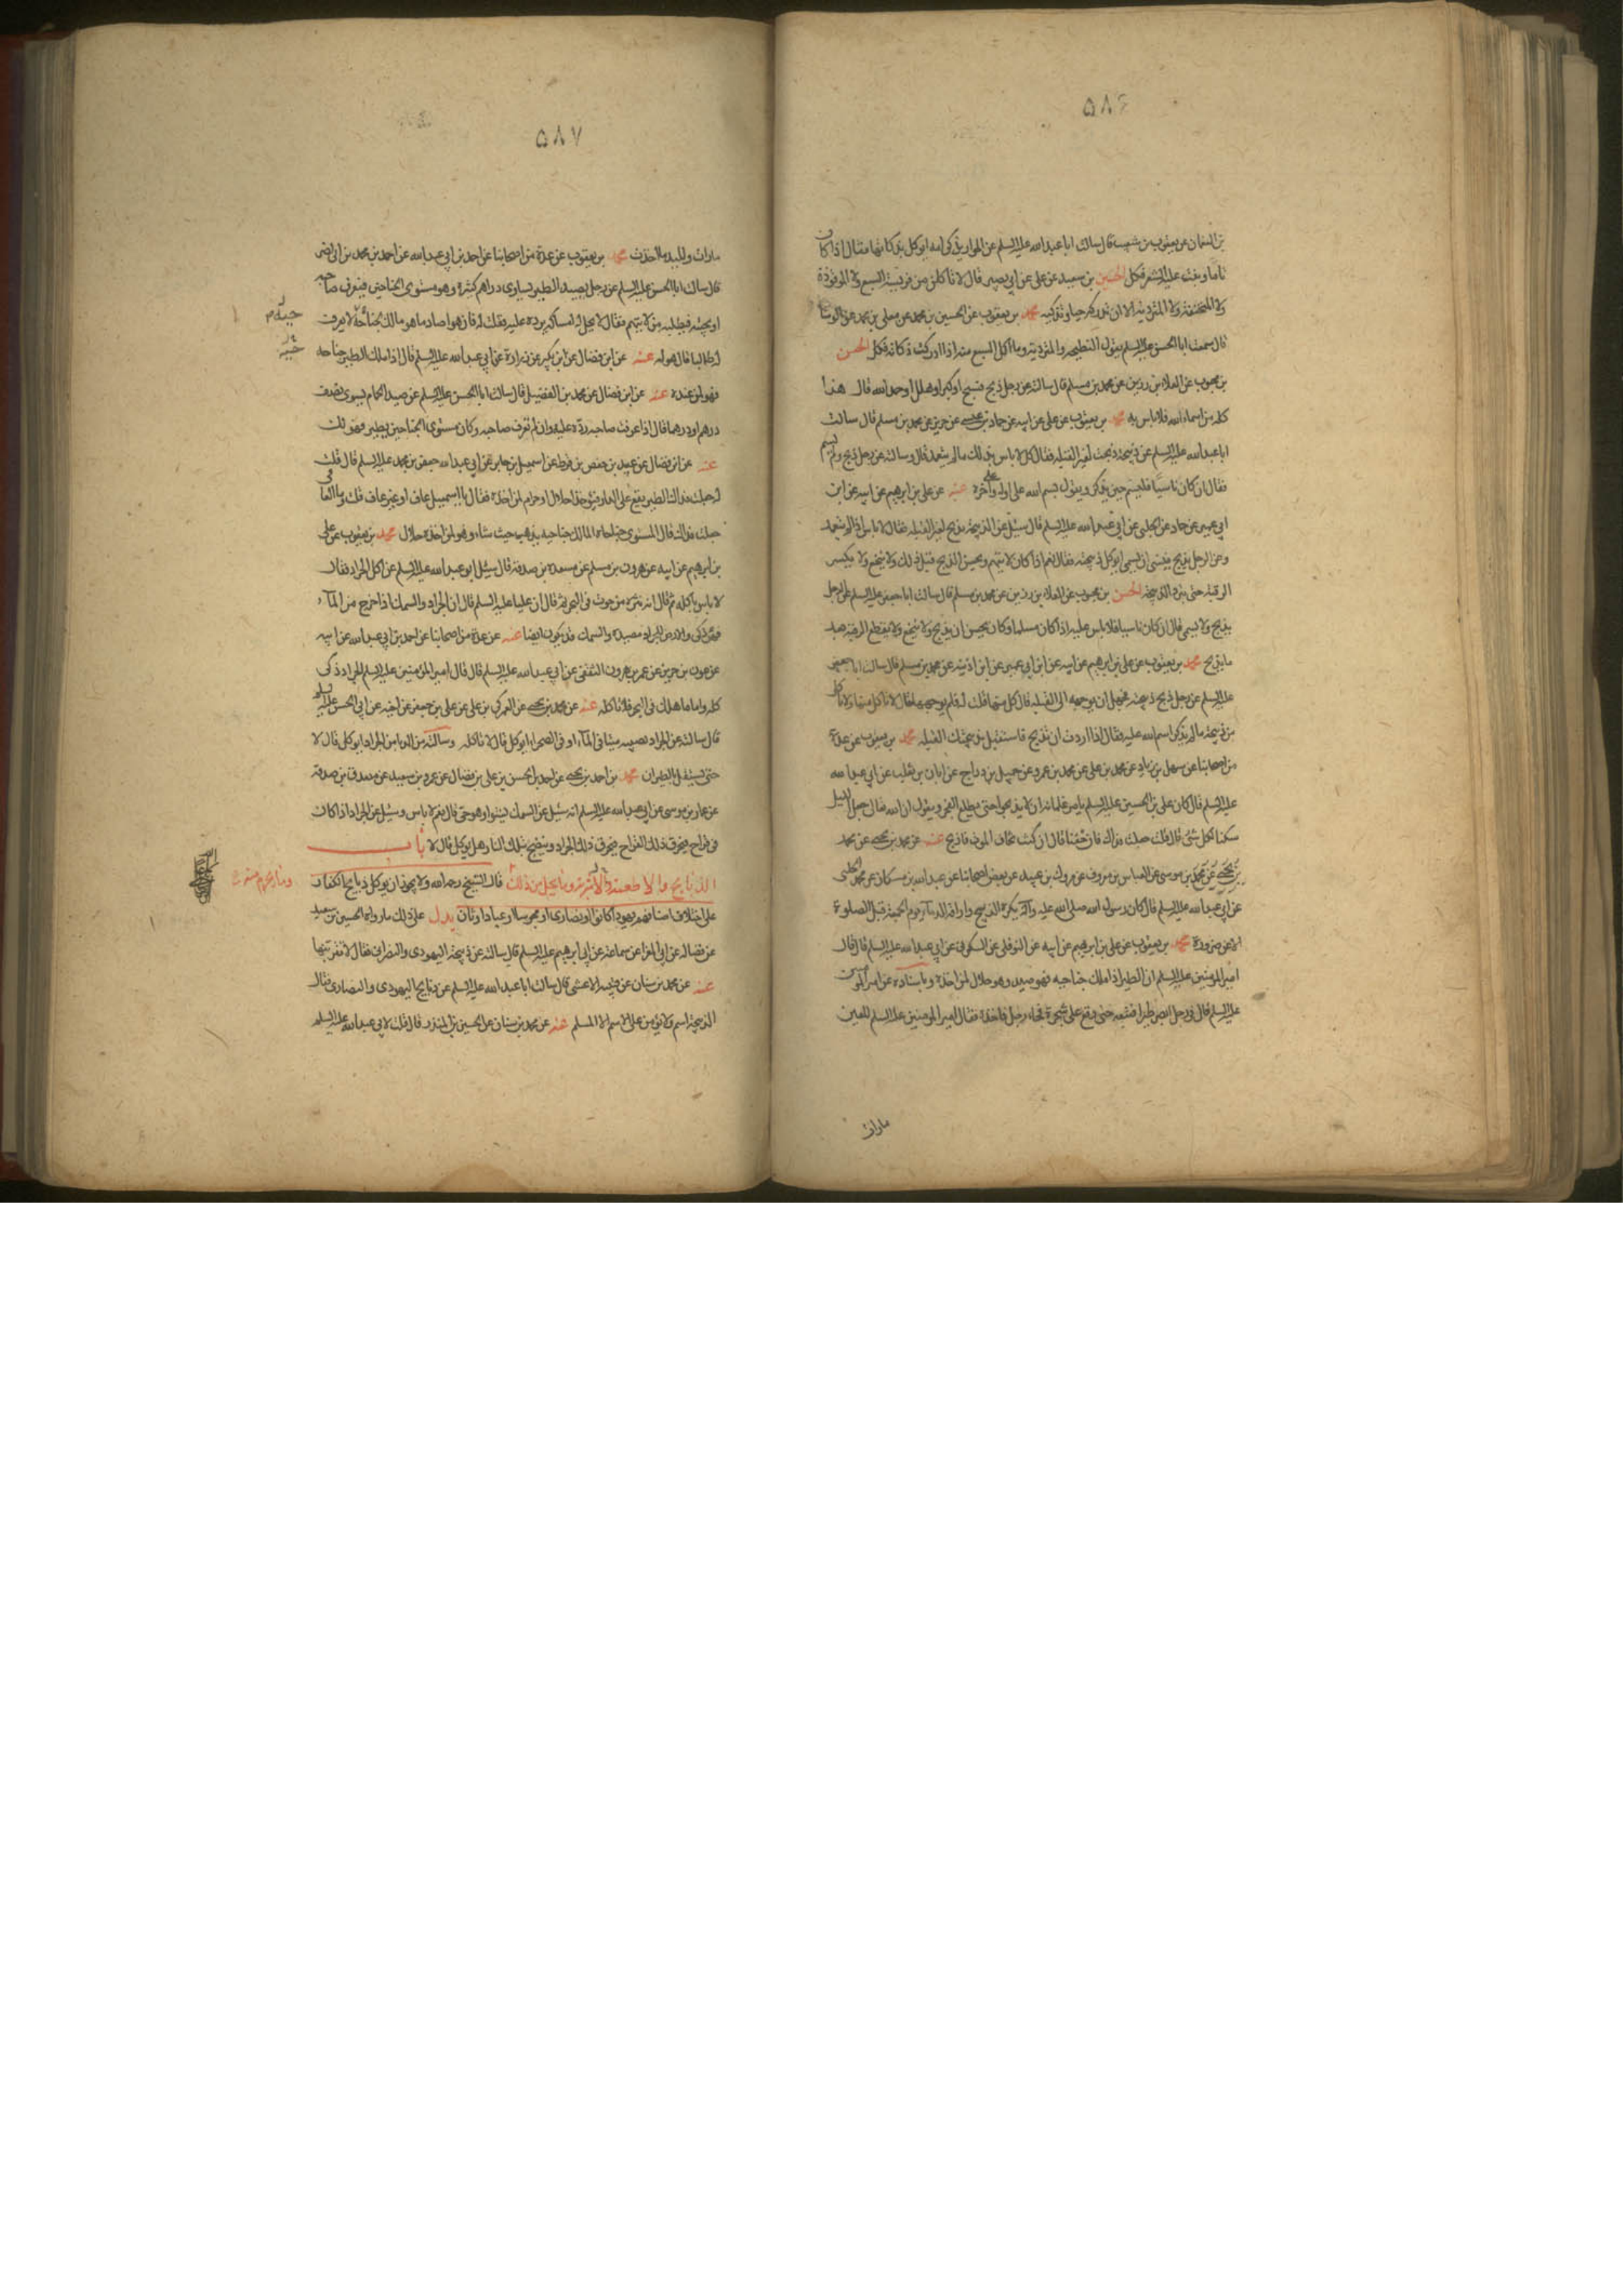 ۵۸۶
بن النعمان عن يعقوب بن شعيب قال سالت ابا عبد الله عليه السلم عن الحوار يذكى امه ايوكل بذكاتها فقال اذا كان
تاما ونبت عليه الشعر فكل الحسين بن سعيد عن على عن ابى بصير قال لا تاكل من فريسة السبع ولا الموقوذة
ولا المنخنقة ولا المتردية الا ان تدركه حيا وتذكيه محمد بن يعقوب عن الحسين بن محمد عن معلى بن محمد عن الوشا
قال سمعت ابا الحسن عليه السلم يقول النطيحة والمتردية وما اكل السبع منه اذا ادركت ذكاته فكل الحسن
بن محبوب عن العلاء بن رزين عن محمد بن مسلم قال سالته عن رجل ذبح فسبح او كبر او هلل او حمد الله قال هذا
كله من اسماء الله فلا باس به محمد بن يعقوب عن على عن ابيه عن حماد بن عيسى عن حريز عن محمد بن مسلم قال سالت
ابا عبد الله عليه السلم عن ذبيحة ذبحت لغير القبلة فقال كل لا باس بذلك مالم يتعمد قال وسالته عن رجل ذبح ولم يسم
فقال ان كان ناسيا فليسم حين يذكر ويقول بسم الله على اوله وعلى آخره عنه عن على بن ابرهيم عن ابيه عن ابن
ابى عمير عن حماد عن الحلبى عن ابى عبد الله عليه السلم قال سئل عن الذبيحة تذبح لغير القبلة فقال لا باس اذا لم يتعمد
وعن الرجل يذبح فينسى ان يسمى ايوكل ذبيحته فقال نعم اذا كان لا يتهم ويحسن الذبح قبل ذلك ولا ينخع ولا يكسر
الرقبة حتى تبرد الذبيحة الحسن بن محبوب عن العلاء بن رزين عن محمد بن مسلم قال سالت ابا جعفر عليه السلم عن الرجل
يذبح ولا يسمى قال ان كان ناسيا فلا باس عليه اذا كان مسلما وكان يحسن ان يذبح ولا ينخع ولا يقطع الرقبة بعد
ما يذبح محمد بن يعقوب عن على بن ابرهيم عن ابيه عن ابن ابى عمير عن ابن اذينه عن محمد بن مسلم قال سالت ابا جعفر
عليه السلم عن رجل ذبح ذبيحة فجهل ان يوجهها الى القبلة قال كل منها قلت له فلم يوجهها فقال لا تاكل منها ولا تاكل
من ذبيحة مالم يذكر اسم الله عليه فقال اذا اردت ان تذبح فاستقبل بذبيحتك القبلة محمد بن يعقوب عن عدة
من اصحابنا عن سهل بن زياد عن محمد بن على عن محمد بن عمرو عن جميل بن دراج عن ابان بن تغلب عن ابى عبد الله
عليه السلم قال كان على بن الحسين عليه السلم يامر غلمانه ان لا يذبحوا حتى يطلع الفجر ويقول ان الله تعالى جعل الليل
سكنا لكل شئ قال قلت جعلت فداك فان خفنا قال ان كنت تخاف الموت فاذبح عنه عن محمد بن يحيى عن محمد
بن يحيى عن محمد بن موسى عن العباس بن معروف عن مروك بن عبيد عن بعض اصحابنا عن عبد الله بن مسكان عن محمد الحلبى
عن ابى عبد الله عليه السلم قال كان رسول الله صلى الله عليه وآله يكره الذبح واراقة الدماء يوم الجمعة قبل الصلوة
الا عن ضرورة محمد بن يعقوب عن على بن ابرهيم عن ابيه عن النوفلى عن السكونى عن ابى عبد الله عليه السلم قال قال
امير المومنين عليه السلم ان الطير اذا ملك جناحيه فهو صيد وهو حلال لمن اخذه وباسناده عن امير المومنين
عليه السلم قال فى رجل ابصر طيرا فتبعه حتى وقع على شجرة فجاء رجل فاخذه فقال امير المومنين عليه السلم للعين
مارات
۵۸۷
مارات ولليد ما اخذت محمد بن يعقوب عن عدة من اصحابنا عن احمد بن ابى عبد الله عن احمد بن محمد بن ابى نصر
قال سالت ابا الحسن عليه السلم عن رجل يصيد الطير يساوى دراهم كثيرة وهو مستوى الجناحين فيعرف صاحبه
او يجيئه فيطلبه من لا يتهم فقال لا يحل له امساكه يرده عليه فقلت له فان هو صاد ما هو مالك لجناحه لا يعرف
له طالبا قال هو له عنه عن ابن فضال عن ابن بكير عن زرارة عن ابى عبد الله عليه السلم قال اذا ملك الطير جناحه
فهو لمن اخذه عنه عن ابن فضال عن محمد بن الفضيل قال سالت ابا الحسن عليه السلم عن صيد الحمام يسوى نصف
درهم او درهما قال اذا عرفت صاحبه رده عليه وان لم تعرف صاحبه وكان مستوى الجناحين يطير فهو لك
عنه عن ابن فضال عن عبيد بن حفص بن قرط عن اسمعيل بن جابر عن ابى عبد الله جعفر بن محمد عليه السلم قال قلت
له جعلت فداك الطير يقع على الدار فيوخذ احلال او حرام لمن اخذه فقال يا اسمعيل عاف او غير عاف قلت وما العافى
جعلت فداك قال المستوى جناحاه المالك جناحيه يذهب حيث شاء وهو لمن اخذه حلال محمد بن يعقوب عن على
بن ابرهيم عن ابيه عن هرون بن مسلم عن مسعدة بن صدقة قال سئل ابو عبد الله عليه السلم عن اكل الجراد فقال
لا باس باكله ثم قال انه نثرة من حوت فى البحر ثم قال ان عليا عليه السلم قال ان الجراد والسمك اذا خرج من الماء
فهو ذكى والارض للجراد مصيدة والسمك قد يكون ايضا عنه عن عدة من اصحابنا عن احمد بن ابى عبد الله عن ابيه
عن عون بن جرير عن عمر بن هرون الثقفى عن ابى عبد الله عليه السلم قال قال امير المؤمنين عليه السلم الجراد ذكى
كله واما ما هلك فى البحر فلا تاكله عنه عن محمد بن يحيى عن العمركى بن على عن على بن جعفر عن اخيه عن ابى الحسن عليه السلم
قال سالته عن الجراد نصيبه ميتا فى الماء او فى الصحراء ايوكل قال لا تاكله وسالته عن الدبا من الجراد ايوكل قال لا
حتى يستقل بالطيران محمد بن احمد بن يحيى عن احمد بن الحسن بن على بن فضال عن عمرو بن سعيد عن مصدق بن صدقة
عن عمار بن موسى عن ابى عبد الله عليه السلم انه سئل عن السمك يشوا وهو حى قال نعم لا باس وسئل عن الجراد اذا كان
فى قراح فيحرق ذلك القراح فيحرق ذلك الجراد وينضج بتلك النار هل يوكل قال لا باب
الذبايح والاطعمة والاشربة وما يحل من ذلك قال الشيخ رحمه الله ولا يجوز ان يوكل ذبايح الكفار
وما يحرم منه
على اختلاف اصنافهم يهودا كانوا او نصارى او مجوسا او عباد اوثان يدل على ذلك ما رواه الحسين بن سعيد
عن فضالة عن ابى المغرا عن سماعة عن ابى ابرهيم عليه السلم قال سالته عن ذبيحة اليهودى والنصرانى فقال لا تقربنها
عنه عن محمد بن سنان عن قتيبة الاعشى قال سالت ابا عبد الله عليه السلم عن ذبايح اليهودى والنصارى فقال
الذبيحة اسم ولا يؤمن على الاسم الا المسلم عنه عن محمد بن سنان عن الحسين بن المنذر قال قلت لابى عبد الله عليه السلم